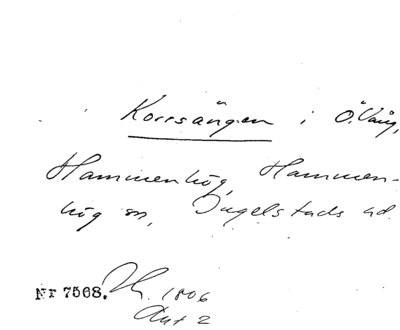 Korrsängen i Ö. Vång,
Hammenhög, Hammen-
hög sn, Ingelstads hd.
Nr 7568. 1806
Akt 2